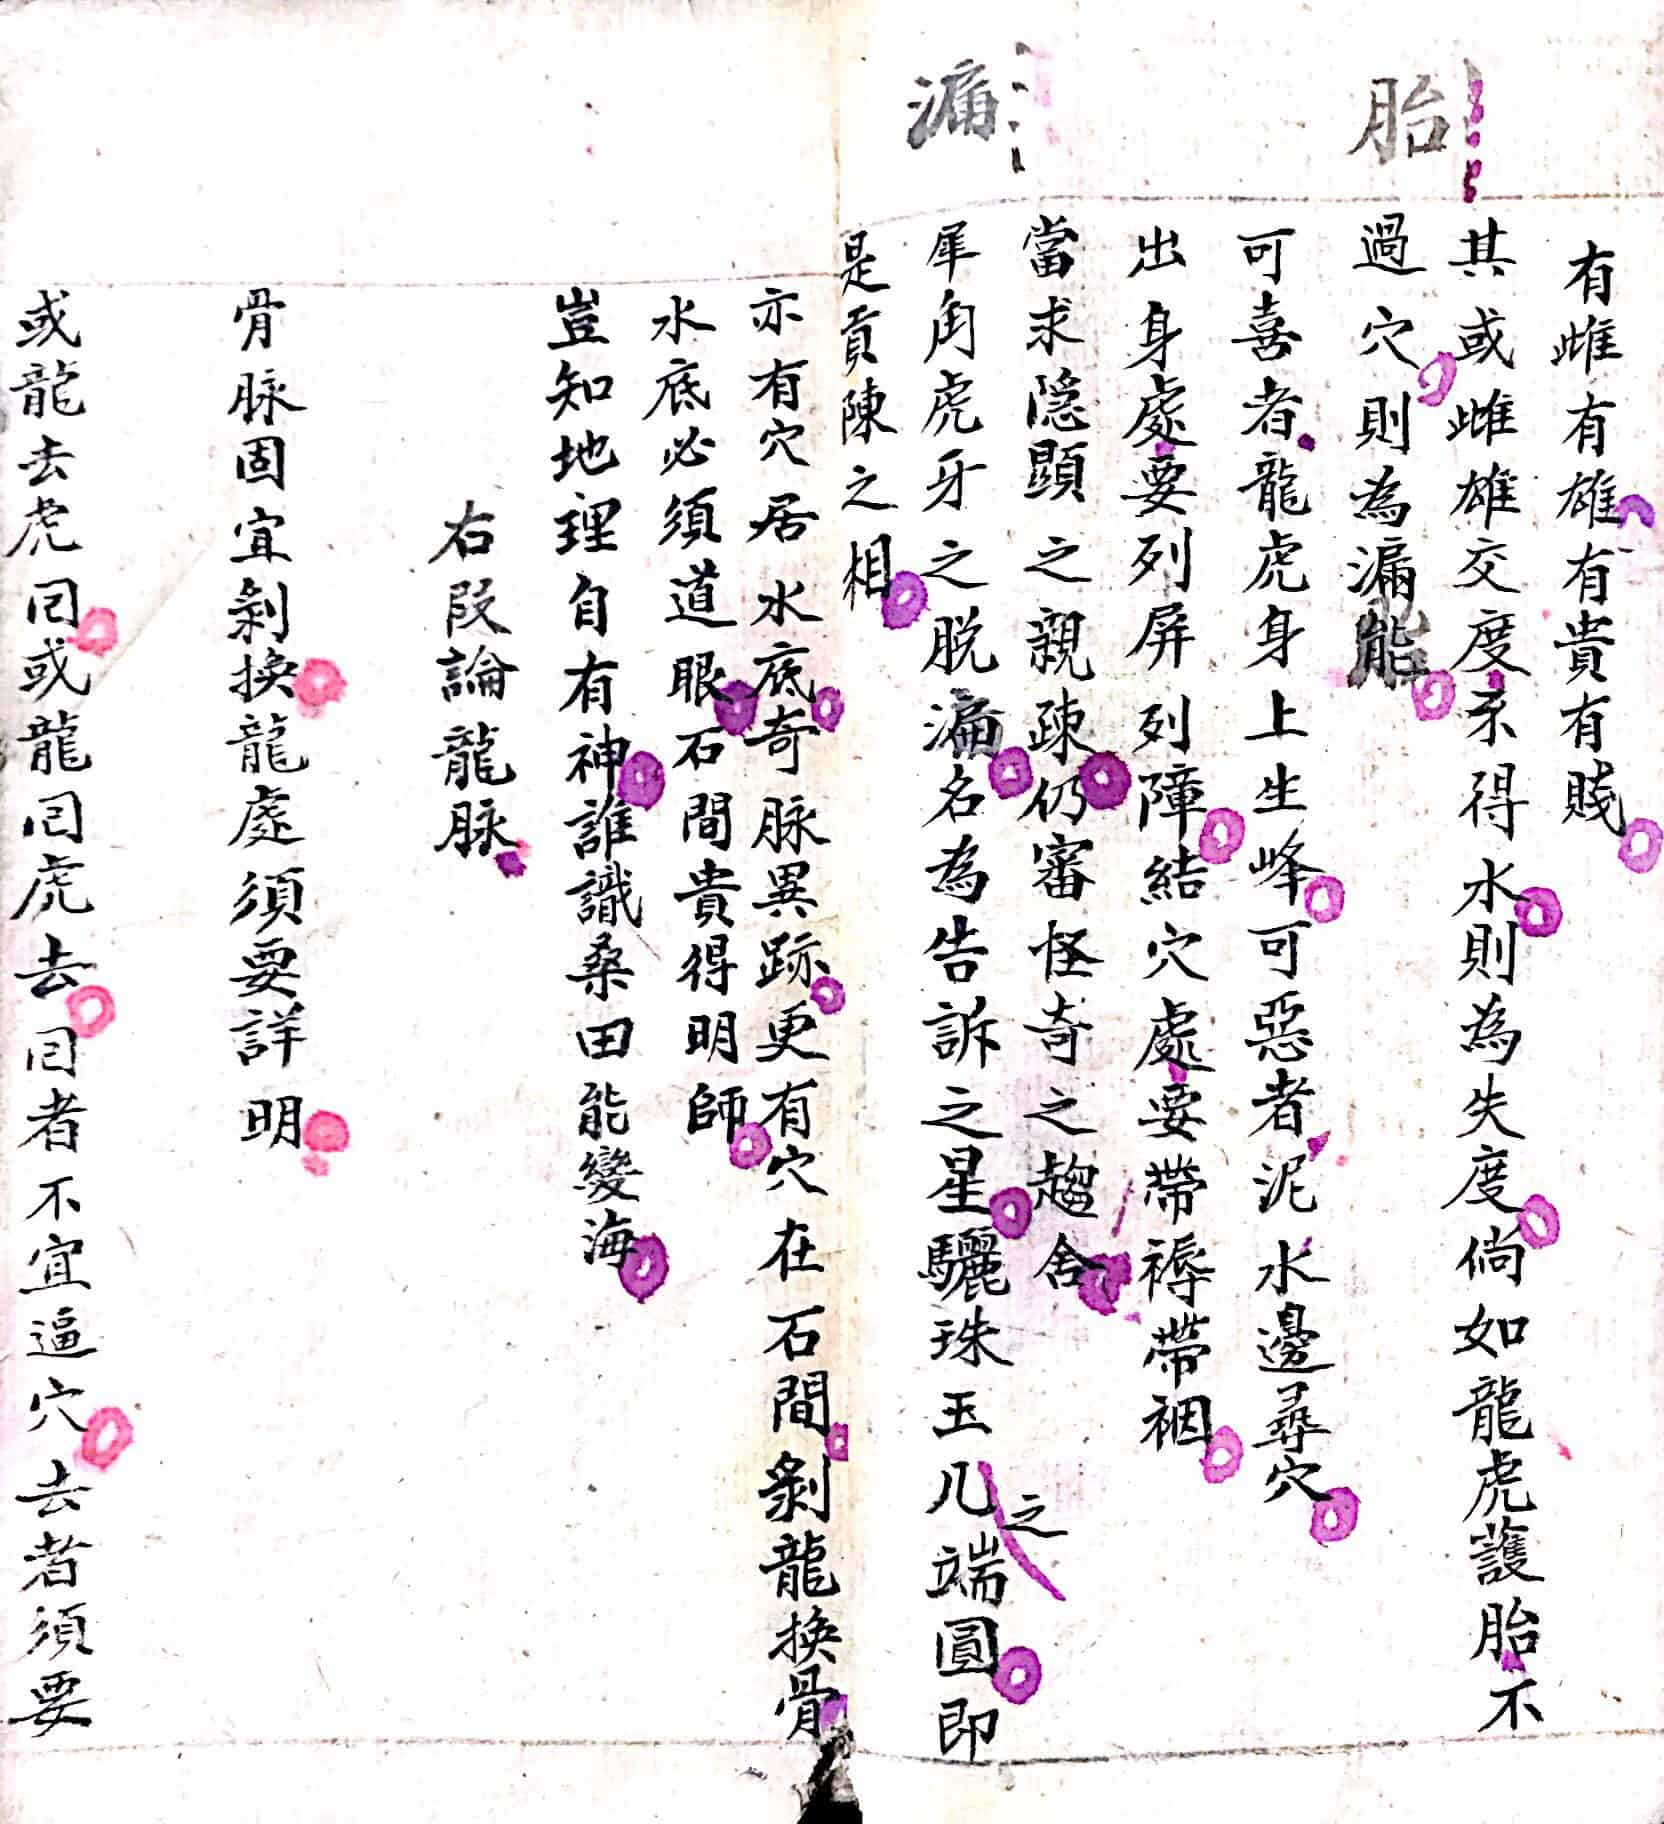 胎
漏
有雌有雄有有貴有賤
其或雌雄交度不得水則為失度倘如龍虎護胎不
過穴則為漏能
可喜者龍虎身上生峰可惡者泥水邊尋穴
出身處要列屏列障結穴處要帶褥帶裀
當求隱顯之親疎仍審怪奇之趨舍
犀角虎牙之脱漏名為告訴之星驪珠玉几之端圓即
是貢陳之相
亦有穴居水底奇脉異跡更有穴在石間剝龍換骨
水底必須道眼石間貴得明師
豈知地理自有神誰識桑田能變海
右段論龍脉
骨脉固宜剝換龍處須要詳明
或龍去虎囘或龍囘虎去囘者不宜逼穴去者須要